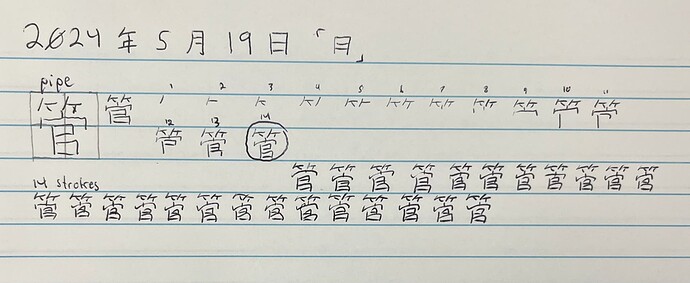 2024年5月19日「日」
pipe
1 2 3 4 5 6 7 8 9 10 11
管 管
12 13 14
管
管 管 管 管 管 管 管 管 管 管 管
14 strokes
管 管 管 管 管 管 管 管 管 管 管 管 管 管